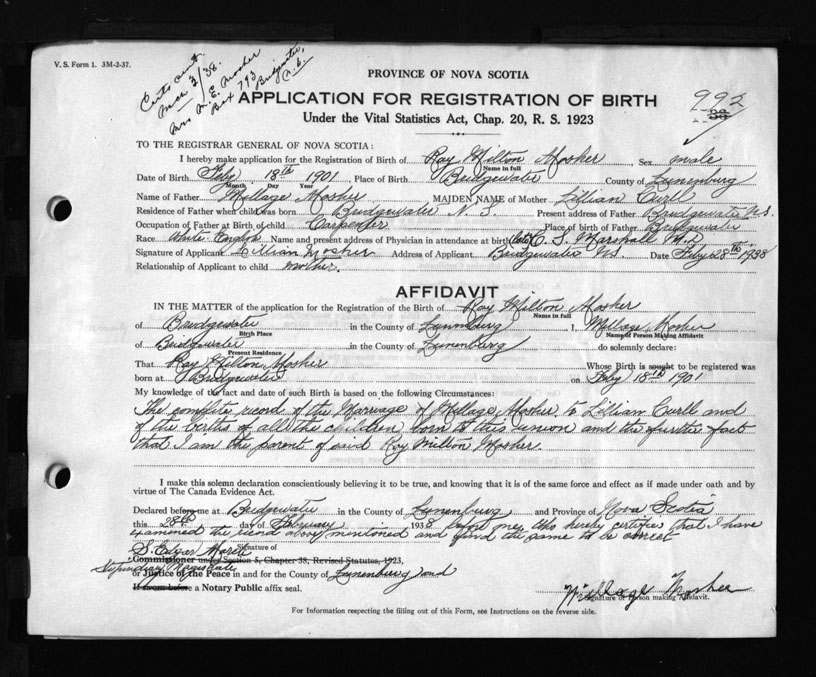 V. S. Form 1. 3M-2-37.
Mar 2/38.
Mrs M. E. Mosher
Box 793
Bridgewater,
N.S.
PROVINCE OF NOVA SCOTIA
APPLICATION FOR REGISTRATION OF BIRTH
992
38
Under the Vital Statistics Act, Chap. 20, R. S. 1923
TO THE REGISTRAR GENERAL OF NOVA SCOTIA:
I hereby make application for the Registration of Birth of Ray Milton Mosher, Sex male
Name in full
Date of Birth Feby 18th 1901 Place of Birth Bridgewater County of Lunenburg
Month Day Year
Name of Father Millage Mosher MAIDEN NAME of Mother Lillian Curll
Residence of Father when child was born Bridgewater N. S. Present address of Father Bridgewater N.S.
Occupation of Father at Birth of child Carpenter Place of birth of Father Bridgewater
Race White Name and present address of Physician in attendance at birth (late) C. S. Marshall M.D
Signature of Applicant Lillian Mosher Address of Applicant Bridgewater N.S. Date Feby 28th 1938
Relationship of Applicant to child mother.
AFFIDAVIT
IN THE MATTER of the application for the Registration of the Birth of Ray Milton Mosher
Name in full
of Bridgewater in the County of Lunenburg I, Millage Mosher
Birth Place Name of Person Making Affidavit
of Bridgewater in the County of Lunenburg do solemnly declare:
Present Residence
That Ray Milton Mosher Whose Birth is sought to be registered was
born at Bridgewater on Feby 18th 1901
My knowledge of the fact and date of such Birth is based on the following Circumstances:
The complete record of the Marriage of Millage Mosher to Lillian Curll and
of the births of all the children born to this union and the further fact
that I am the parent of said Ray Milton Mosher.
I make this solemn declaration conscientiously believing it to be true, and knowing that it is of the same force and effect as if made under oath and by
virtue of The Canada Evidence Act.
Declared before me at Bridgewater in the County of Lunenburg and Province of Nova Scotia
this 28th day of February 1938 before me, who hereby certifies that I have
examined the record above mentioned and find the same to be correct
S. Edgar March Signature of
Commissioner under Section 5, Chapter 38, Revised Statutes, 1923,
Stipendiary Magistrate
or Justice of the Peace in and for the County of Lunenburg and
If sworn before a Notary Public affix seal.
Millage Mosher
Signature of Person making Affidavit.
For Information respecting the filling out of this Form, see Instructions on the reverse side.